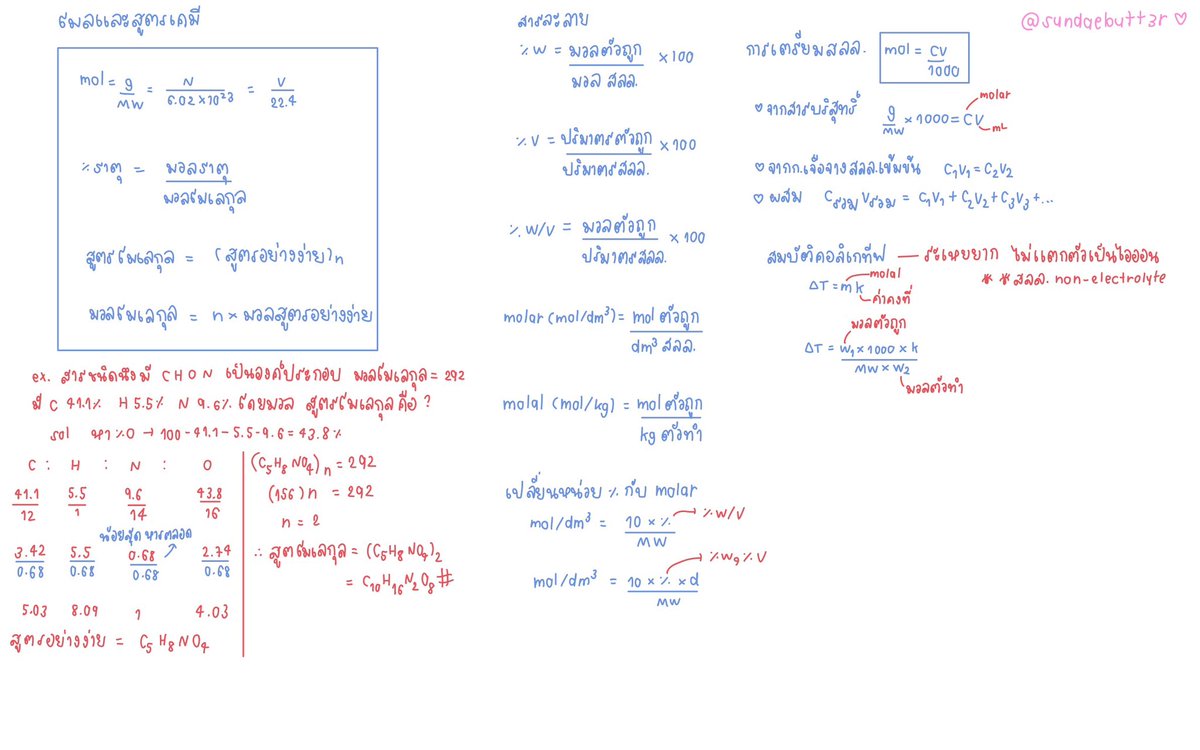 โมลและสูตรเคมี
mol = g/MW = N/6.02×10²³ = V/22.4
%ธาตุ = มวลธาตุ/มวลโมเลกุล
สูตรโมเลกุล = (สูตรอย่างง่าย)n
มวลโมเลกุล = n × มวลสูตรอย่างง่าย
ex. สารชนิดนึงมี C H O N เป็นองค์ประกอบ มวลโมเลกุล = 292
มี C 41.1% H 5.5% N 9.6% โดยมวล สูตรโมเลกุลคือ ?
sol หา %O → 100 - 41.1 - 5.5 - 9.6 = 43.8 %
C : H : N : O
41.1/12 5.5/1 9.6/14 43.8/16
น้อยสุด หารตลอด
3.42/0.68 5.5/0.68 0.68/0.68 2.74/0.68
5.03 8.09 1 4.03
สูตรอย่างง่าย = C₅H₈NO₄
(C₅H₈NO₄)n = 292
(156)n = 292
n = 2
∴ สูตรโมเลกุล = (C₅H₈NO₄)₂
= C₁₀H₁₆N₂O₈ #
สารละลาย
%W = มวลตัวถูก/มวล สลล. ×100
%V = ปริมาตรตัวถูก/ปริมาตรสลล. ×100
%W/V = มวลตัวถูก/ปริมาตรสลล. ×100
molar (mol/dm³) = mol ตัวถูก/dm³ สลล.
molal (mol/kg) = mol ตัวถูก/kg ตัวทำ
เปลี่ยนหน่วย % กับ molar
mol/dm³ = 10 × %/MW → %W/V
mol/dm³ = 10 × % × d/MW → %W, %V
@sundaebutt3r ♡
การเตรียมสลล. mol = CV/1000
♡ จากสารบริสุทธิ์ g/MW × 1000 = CV
molar
mL
♡ จากก.เจือจางสลล.เข้มข้น C₁V₁ = C₂V₂
♡ ผสม CรวมVรวม = C₁V₁ + C₂V₂ + C₃V₃ + ...
สมบัติคอลิเกทีฟ — ระเหยยาก ไม่แตกตัวเป็นไอออน
** สลล. non-electrolyte
ΔT = mk
molal
ค่าคงที่
มวลตัวถูก
ΔT = W₁ × 1000 × k/MW × W₂
มวลตัวทำ